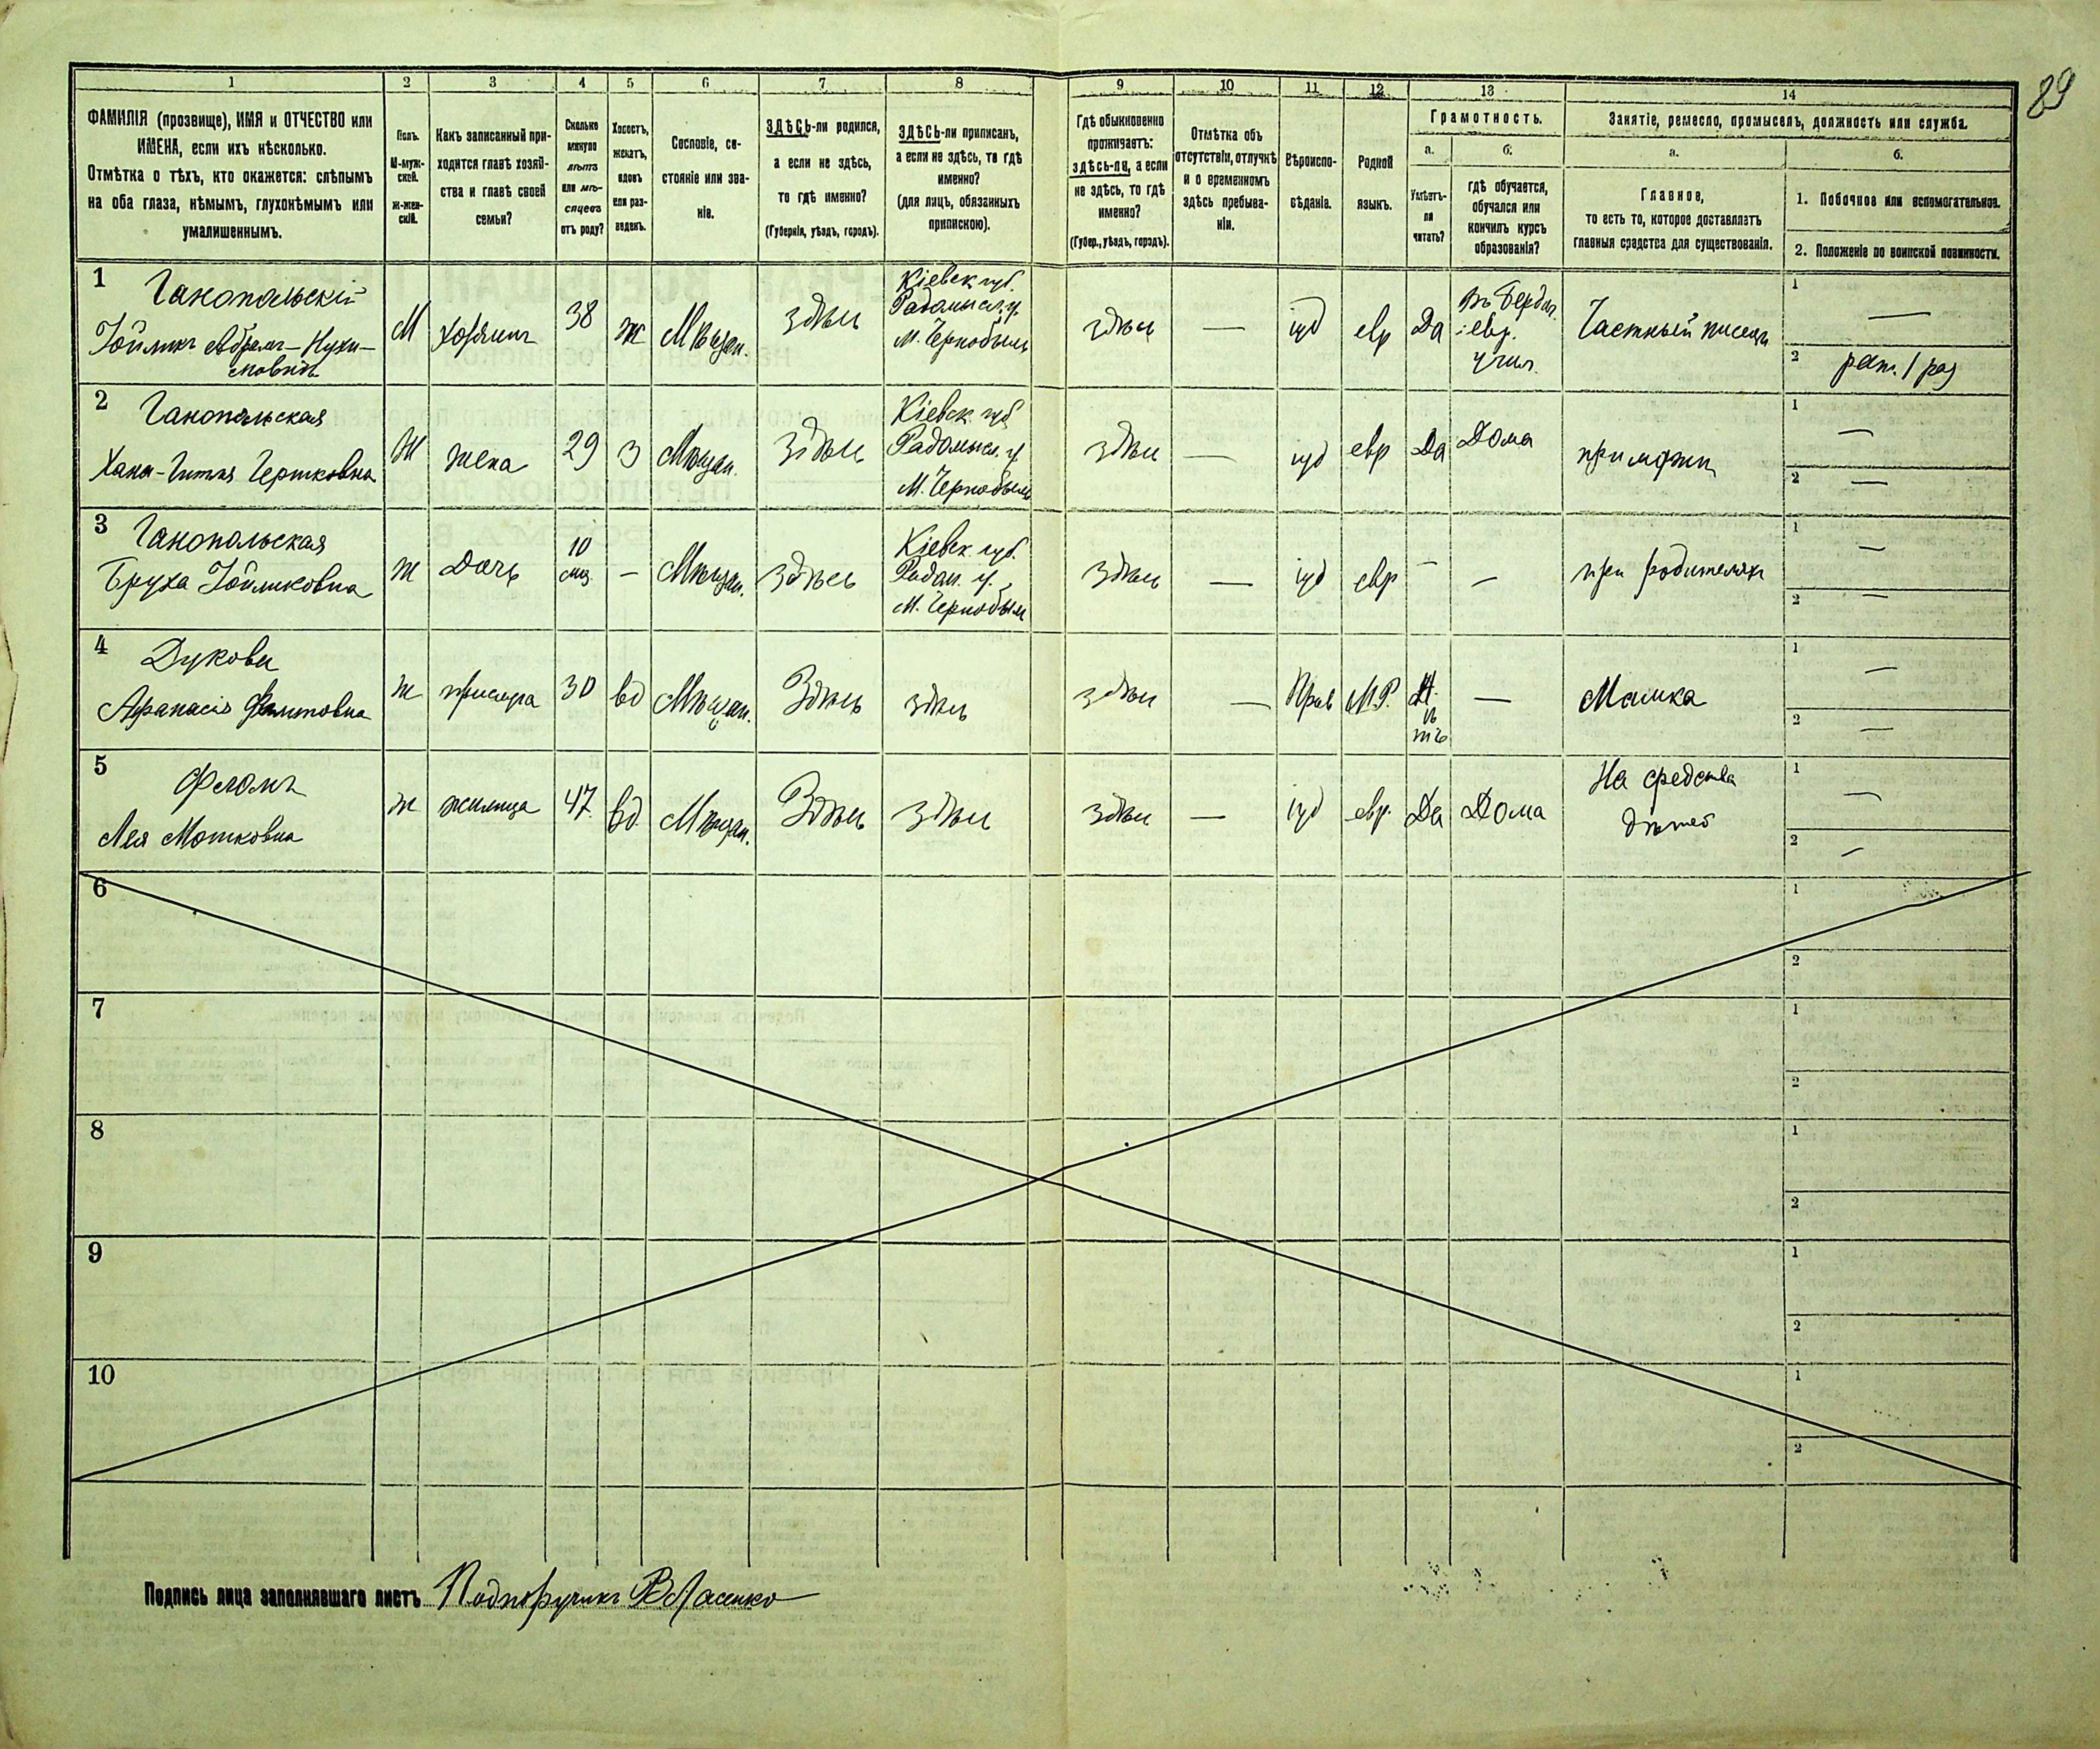 89
1 2 3 4 5 6 7 8 9 10 11 12 13 14
ФАМИЛІЯ (прозвище), ИМЯ и ОТЧЕСТВО или
ИМЕНА, если ихъ нѣсколько.
Отмѣтка о тѣхъ, кто окажется: слѣпымъ
на оба глаза, нѣмымъ, глухонѣмымъ или
умалишеннымъ.
Полъ.
М-муж-
ской.
Ж-жен-
скій.
Какъ записанный при-
ходится главѣ хозяй-
ства и главѣ своей
семьи?
Сколько
минуло
лѣтъ
или мѣ-
сяцевъ
отъ роду?
Холостъ,
женатъ,
вдовъ
или раз-
веденъ.
Сословіе, со-
стояніе или зва-
ніе.
ЗДѢСЬ-ли родился,
а если не здѣсь,
то гдѣ именно?
(Губернія, уѣздъ, городъ).
ЗДѢСЬ-ли приписанъ,
а если не здѣсь, то гдѣ
именно?
(для лицъ, обязанныхъ
припискою).
Гдѣ обыкновенно
проживаетъ:
здѣсь-ли, а если
не здѣсь, то гдѣ
именно?
(Губер., уѣздъ, городъ).
Отмѣтка объ
отсутствіи, отлучкѣ
и о временномъ
здѣсь пребыва-
ніи.
Вѣроиспо-
вѣданіе.
Родной
языкъ.
Грамотность.
а.
Умѣетъ-
ли
читать?
б.
гдѣ обучается,
обучался или
кончилъ курсъ
образованія?
Занятіе, ремесло, промыселъ, должность или служба.
а.
Главное,
то есть то, которое доставляетъ
главныя средства для существованія.
б.
1. Побочное или вспомогательное.
2. Положеніе по воинской повинности.
1 Ганопольскій
Іойликъ Абрамъ-Нухи-
мовичъ
М
хозяинъ
38
ж
Мѣщан.
здѣсь
Кіевск. губ.
Радомысл. у.
м. Чернобыль
здѣсь
—
іуд
евр
Да
въ Бердич.
евр.
учил.
Частный писецъ
1 —
2 рат. 1 раз
2 Ганопольская
Хана-Гитля Гершковна
Ж
жена
29
З
Мѣщан.
здѣсь
Кіевск. губ
Радомысл. у
м. Чернобыль
здѣсь
—
іуд
евр
Да
Дома
при мужѣ
1 —
2 —
3 Ганопольская
Бруха Іойликовна
ж
дочь
10
мѣс
—
Мѣщан.
здѣсь
Кіевск. губ.
Радом. у.
м. Чернобыль
здѣсь
—
іуд
евр
—
—
при родителяхъ
1 —
2 —
4 Дукова
Афанасія Филиповна
ж
прислуга
30
вд
Мѣщан.
Здѣсь
здѣсь
здѣсь
—
Прав
М.Р.
Нѣтъ
—
Мамка
1 —
2 —
5
Лея Мошковна
ж
жилица
47
вд.
Мѣщан.
Здѣсь
здѣсь
здѣсь
—
іуд
евр.
Да
Дома
На средства
дѣтей
1 —
2 —
6 1
2
7 1
2
8 1
2
9 1
2
10 1
2
Подпись лица заполнявшаго листъ Подпоручикъ Власенко